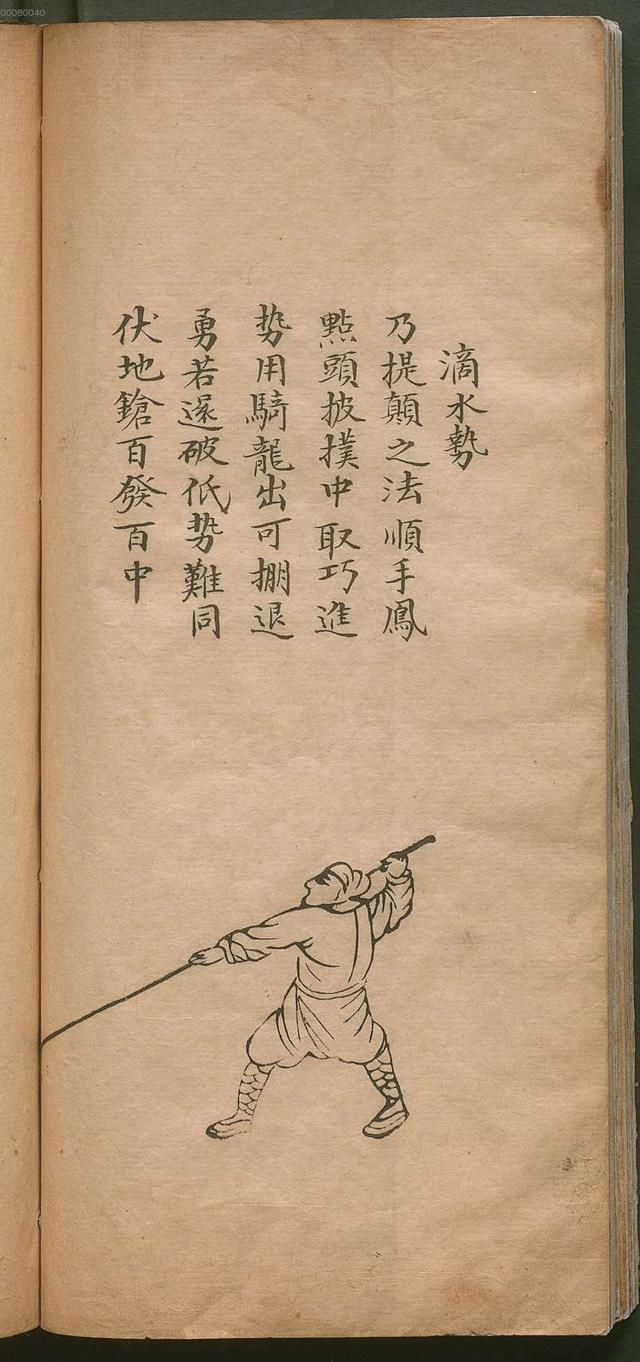 00080040
滴水勢
乃提顛之法順手鳳
點頭披撲中取巧進
势用騎龍出可掤退
勇若還破低势難同
伏地鎗百發百中